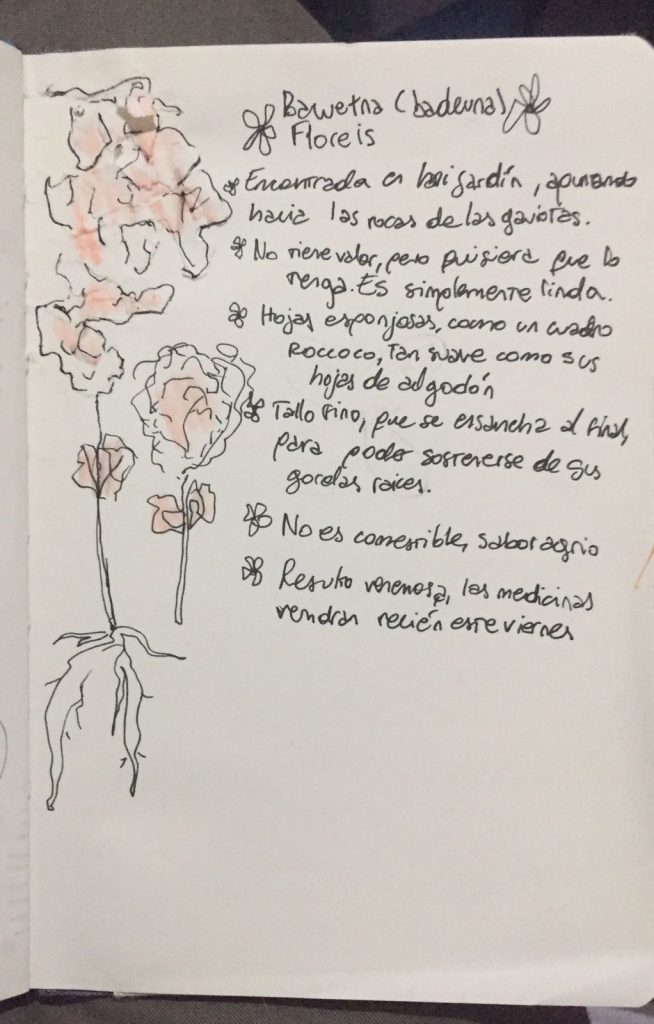 Bawetna (badeuna)
Floreis
Encontrada en mi jardín, apuntando
hacia las rocas de las gaviotas.
No tiene valor, pero quisiera que lo
tenga. Es simplemente linda.
Hojas esponjosas, como un cuadro
Roccoco, tan suave como sus
hojas de algodón
Tallo fino, que se ensancha al final,
para poder sostenerse de sus
gordas raices.
No es comestible, sabor agrio
Resulto venenosa, las medicinas
vendran recién este viernes